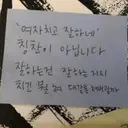 "여자치고 잘하네"
칭찬이 아닙니다
잘하는건 잘하는 거지
치긴 뭘 쳐